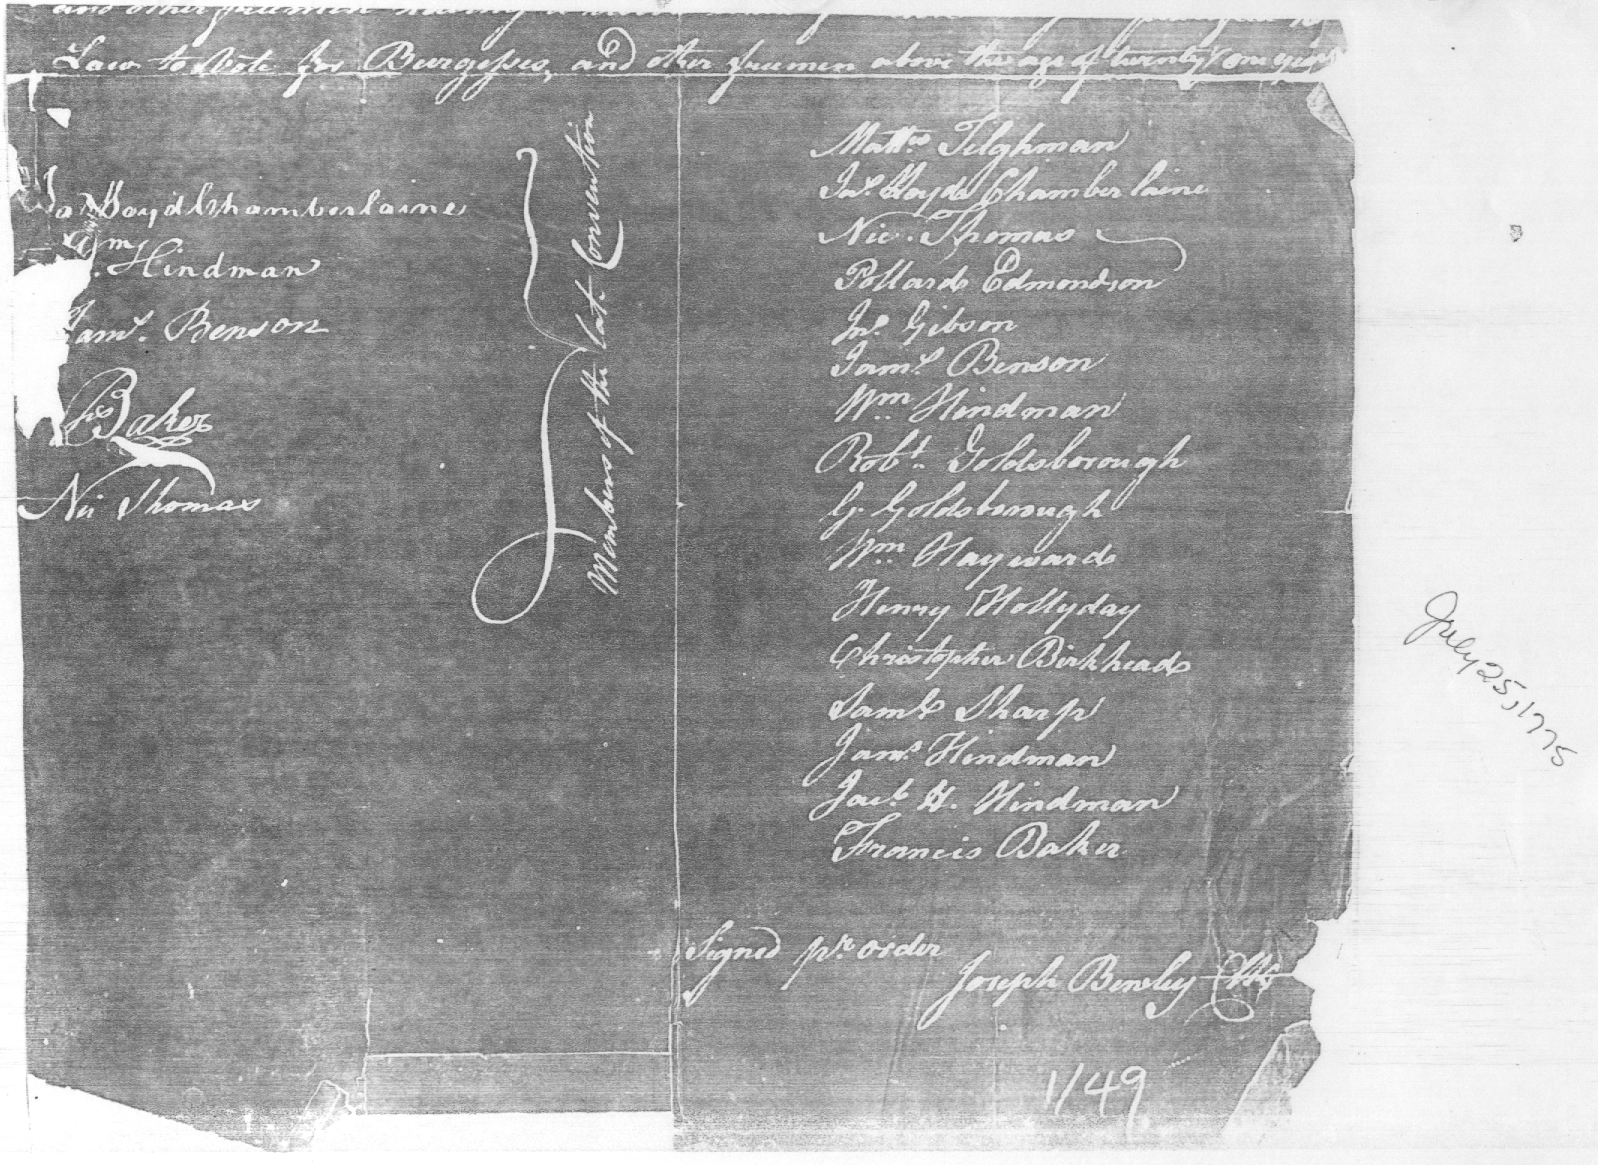 and other freemen having a
Law to Vote for Burgesses, and other freemen above the age of twenty one years
Ja Loyd Chamberlaine
Wm. Hindman
Saml. Benson
Fs Baker
Nic Thomas
Members of the late Convention
Mattw Tilghman
Jas. Lloyd Chamberlaine
Nic. Thomas
Pollard Edmondson
Jno. Gibson
Saml. Benson
Wm. Hindman
Robt. Goldsborough
G. Goldsborough
Wm. Hayward
Henry Hollyday
Christopher Birkhead
Saml Sharp
Jams. Hindman
Jacb. H. Hindman
Francis Baker
Signed pr. order
Joseph Bewley Clk
1149
July 25, 1775